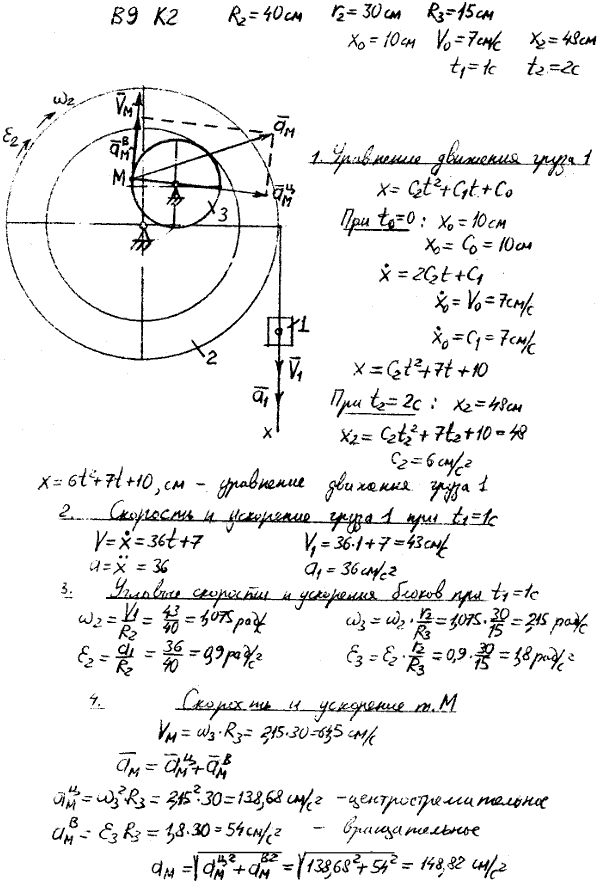 В9 К2 R₂=40см r₂=30см R₃=15см
x₀=10см V₀=7см/с x₂=48см
t₁=1с t₂=2с
ω₂
ε₂
V̄м
āмᴮ
āм
M
āмᶣ
3
1
2
V̄₁
ā₁
x
1. Уравнение движения груза 1
x=C₂t²+C₁t+C₀
При t₀=0: x₀=10см
x₀=C₀=10см
ẋ=2C₂t+C₁
ẋ₀=V₀=7см/с
ẋ₀=C₁=7см/с
x=C₂t²+7t+10
При t₂=2с: x₂=48см
x₂=C₂t₂²+7t₂+10=48
C₂=6см/с²
x=6t²+7t+10, см – уравнение движения груза 1
2. Скорость и ускорение груза 1 при t₁=1с
V=ẋ=36t+7 V₁=36·1+7=43см/с
a=ẍ=36 a₁=36см/с²
3. Угловые скорости и ускорения блоков при t₁=1с
ω₂=V₁/R₂=43/40=1,075рад/с ω₃=ω₂·r₂/R₃=1,075·30/15=2,15рад/с
ε₂=a₁/R₂=36/40=0,9рад/с² ε₃=ε₂·r₂/R₃=0,9·30/15=1,8рад/с²
4. Скорость и ускорение т.М
Vм=ω₃·R₃=2,15·30=64,5см/с
āм=āмᶣ+āмᴮ
aмᶣ=ω₃²R₃=2,15²·30=138,68см/с² –центростремительное
aмᴮ=ε₃R₃=1,8·30=54см/с² – вращательное
aм=√(aмᶣ²+aмᴮ²)=√(138,68²+54²)=148,82 см/с²